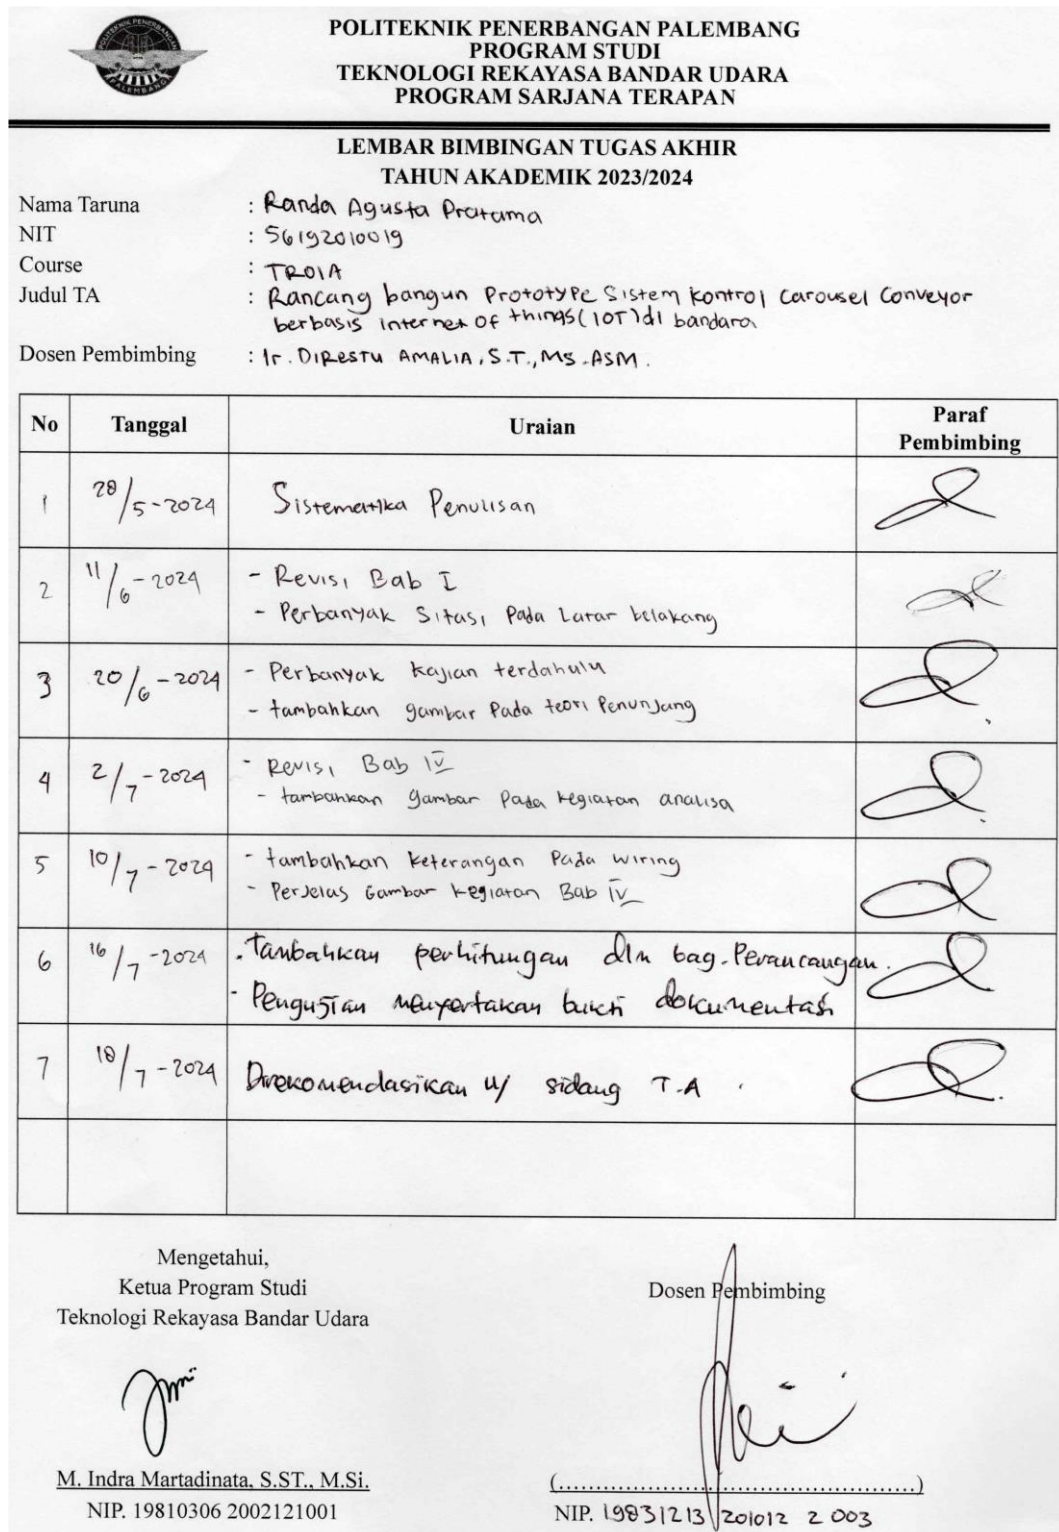 POLITEKNIK PENERBANGAN PALEMBANG
PROGRAM STUDI
TEKNOLOGI REKAYASA BANDAR UDARA
PROGRAM SARJANA TERAPAN
LEMBAR BIMBINGAN TUGAS AKHIR
TAHUN AKADEMIK 2023/2024
Nama Taruna : Randa Agusta Pratama
NIT : 56192010019
Course : TRO1A
Judul TA : Rancang bangun Prototype Sistem Kontrol Carousel Conveyor
berbasis internet of things (IOT) di bandara
Dosen Pembimbing : Ir. DIRESTU AMALIA, S.T., MS.ASM.
No Tanggal Uraian Paraf
Pembimbing
1 28/5-2024 Sistematika Penulisan
2 11/6-2024 - Revisi Bab I
- Perbanyak Sitasi Pada Latar belakang
3 20/6-2024 - Perbanyak Kajian terdahulu
- tambahkan gambar Pada teori Penunjang
4 2/7-2024 - Revisi Bab IV
- tambahkan gambar Pada kegiatan analisa
5 10/7-2024 - tambahkan keterangan Pada wiring
- Perjelas Gambar kegiatan Bab IV
6 16/7-2024 - Tambahkan perhitungan dlm bag. Perancangan.
- Pengujian menyertakan bukti dokumentasi
7 18/7-2024 Direkomendasikan u/ sidang T.A.
Mengetahui,
Ketua Program Studi
Teknologi Rekayasa Bandar Udara
Dosen Pembimbing
M. Indra Martadinata, S.ST., M.Si.
NIP. 19810306 2002121001
(..............................................)
NIP. 19831213 201012 2 003